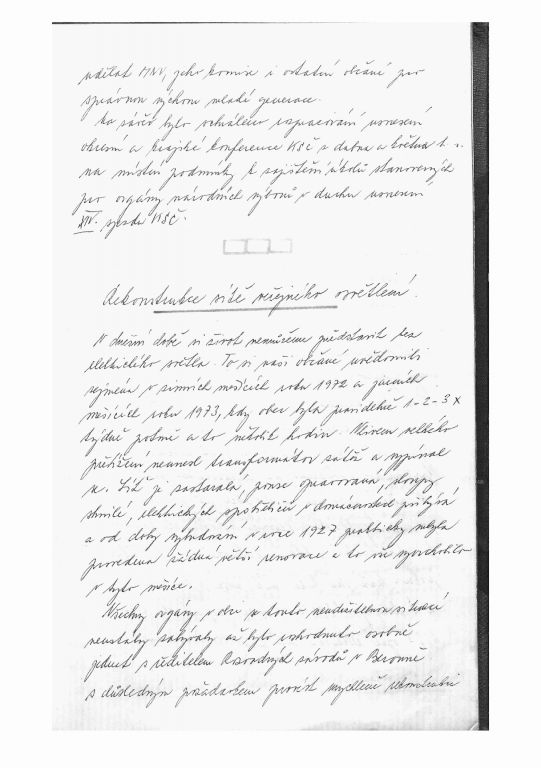 udělat MNV, jeho komise i ostatní občané pro
správnou výchovu mladé generace.
Na závěr bylo schváleno rozpracování usnesení
okresní a krajské konference KSČ v dubnu a květnu t. r.
na místní podmínky k zajištění úkolů stanovených
pro orgány národních výborů v duchu usnesení
XIV. sjezdu KSČ.
Rekonstrukce sítě veřejného osvětlení.
V dnešní době si život nemůžeme představit bez
elektrického světla. To si naši občané uvědomili
zejména v zimních měsících roku 1972 a jarních
měsících roku 1973, kdy obec byla pravidelně 1-2-3 x
týdně potmě a to několik hodin. Vlivem velkého
přetížení nesnesl transformátor zátěž a vypínal
se. Síť je zastaralá, pouze opravovaná, sloupy
shnilé, elektrických spotřebičů v domácnostech přibývá
a od doby vybudování v roce 1927 prakticky nebyla
provedena žádná větší renovace a to vše vyvrcholilo
v tyto měsíce.
Všechny orgány v obci se touto neudržitelnou situací
neustále zabývaly až bylo rozhodnuto osobně
jednat s ředitelem Rozvodných závodů v Berouně
s důsledným požadavkem provést urychleně rekonstrukci